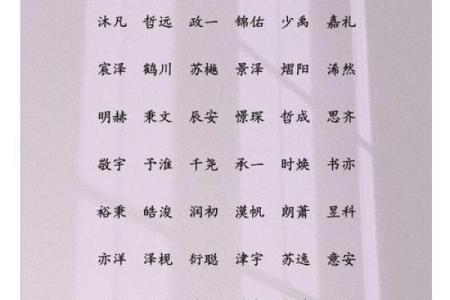 沐凡 哲远 政一 锦佑 少禹 嘉礼
宸泽 鹤川 苏樾 景泽 熠阳 浠然
明赫 秉文 辰安 憬琛 哲成 思齐
敬宇 予淮 千尧 承一 时焕 书亦
裕秉 皓浚 润初 漠帆 朗萧 昱科
亦洋 泽枧 衍聪 津宇 苏逸 意安